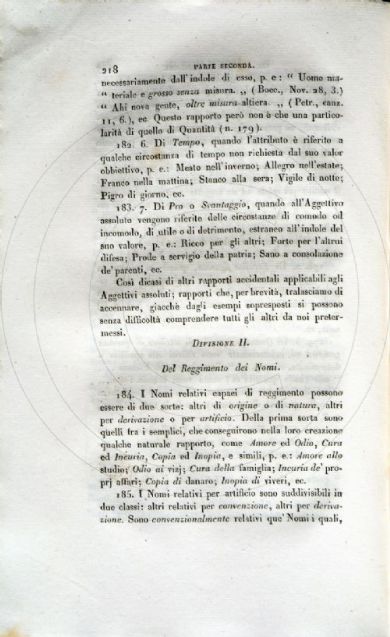 218 PARTE SECONDA.
necessariamente dall'indole di esso, p. e.: “ Uomo ma-
“ teriale e grosso senza misura. „ ( Bocc., Nov. 28, 3.)
“ Ahi nova gente, oltre misura altiera. „ ( Petr., canz.
11, 6.), ec Questo rapporto però non è che una partico-
larità di quello di Quantità ( n. 179).
182. 6. Di Tempo, quando l'attributo è riferito a
qualche circostanza di tempo non richiesta dal suo valor
obbiettivo, p. e.: Mesto nell'inverno; Allegro nell'estate;
Franco nella mattina; Stanco alla sera; Vigile di notte;
Pigro di giorno, ec.
183. 7. Di Pro o Svantaggio, quando all'Aggettivo
assoluto vengono riferite delle circostanze di comodo od
incomodo, di utile o di detrimento, estraneo all'indole del
suo valore, p. e.: Ricco per gli altri; Forte per l'altrui
difesa; Prode a servigio della patria; Sano a consolazione
de' parenti, ec.
Così dicasi di altri rapporti accidentali applicabili agli
Aggettivi assoluti; rapporti che, per brevità, tralasciamo di
accennare, giacchè dagli esempi sopresposti si possono
senza difficoltà comprendere tutti gli altri da noi preter-
messi.
DIVISIONE II.
Del Reggimento dei Nomi.
184. I Nomi relativi capaci di reggimento possono
essere di due sorte: altri di origine o di natura, altri
per derivazione o per artificio. Della prima sorta sono
quelli tra i semplici, che conseguirono nella loro creazione
qualche naturale rapporto, come Amore ed Odio, Cura
ed Incuria, Copia ed Inopia, e simili, p. e.: Amore allo
studio; Odio ai vizj; Cura della famiglia; Incuria de' pro-
prj affari; Copia di danaro; Inopia di viveri, ec.
185. I Nomi relativi per artificio sono suddivisibili in
due classi: altri relativi per convenzione, altri per deriva-
zione. Sono convenzionalmente relativi que' Nomi i quali,